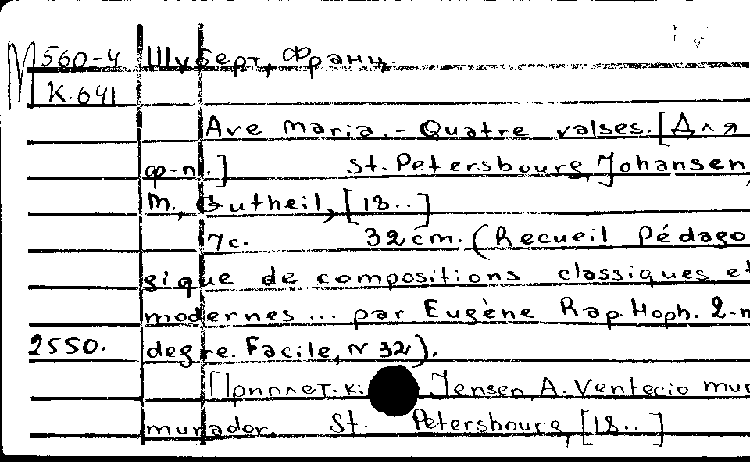 М 560-4 Шуберт, Франц.
К.641
Ave Maria. - Quatre valses. [Для
ф-п.] St. Petersbourg, Johansen,
M., Gutheil, [18..]
7с. 32 cm. (Recueil Pédago
gique de compositions classiques et
modernes ... par Eugène Rap. Hoph. 2-m
2550. degre. Facile, N 32).
Приплет. к: Jensen, A. Ventecio mur
murador. St. Petersbourg, [18..]